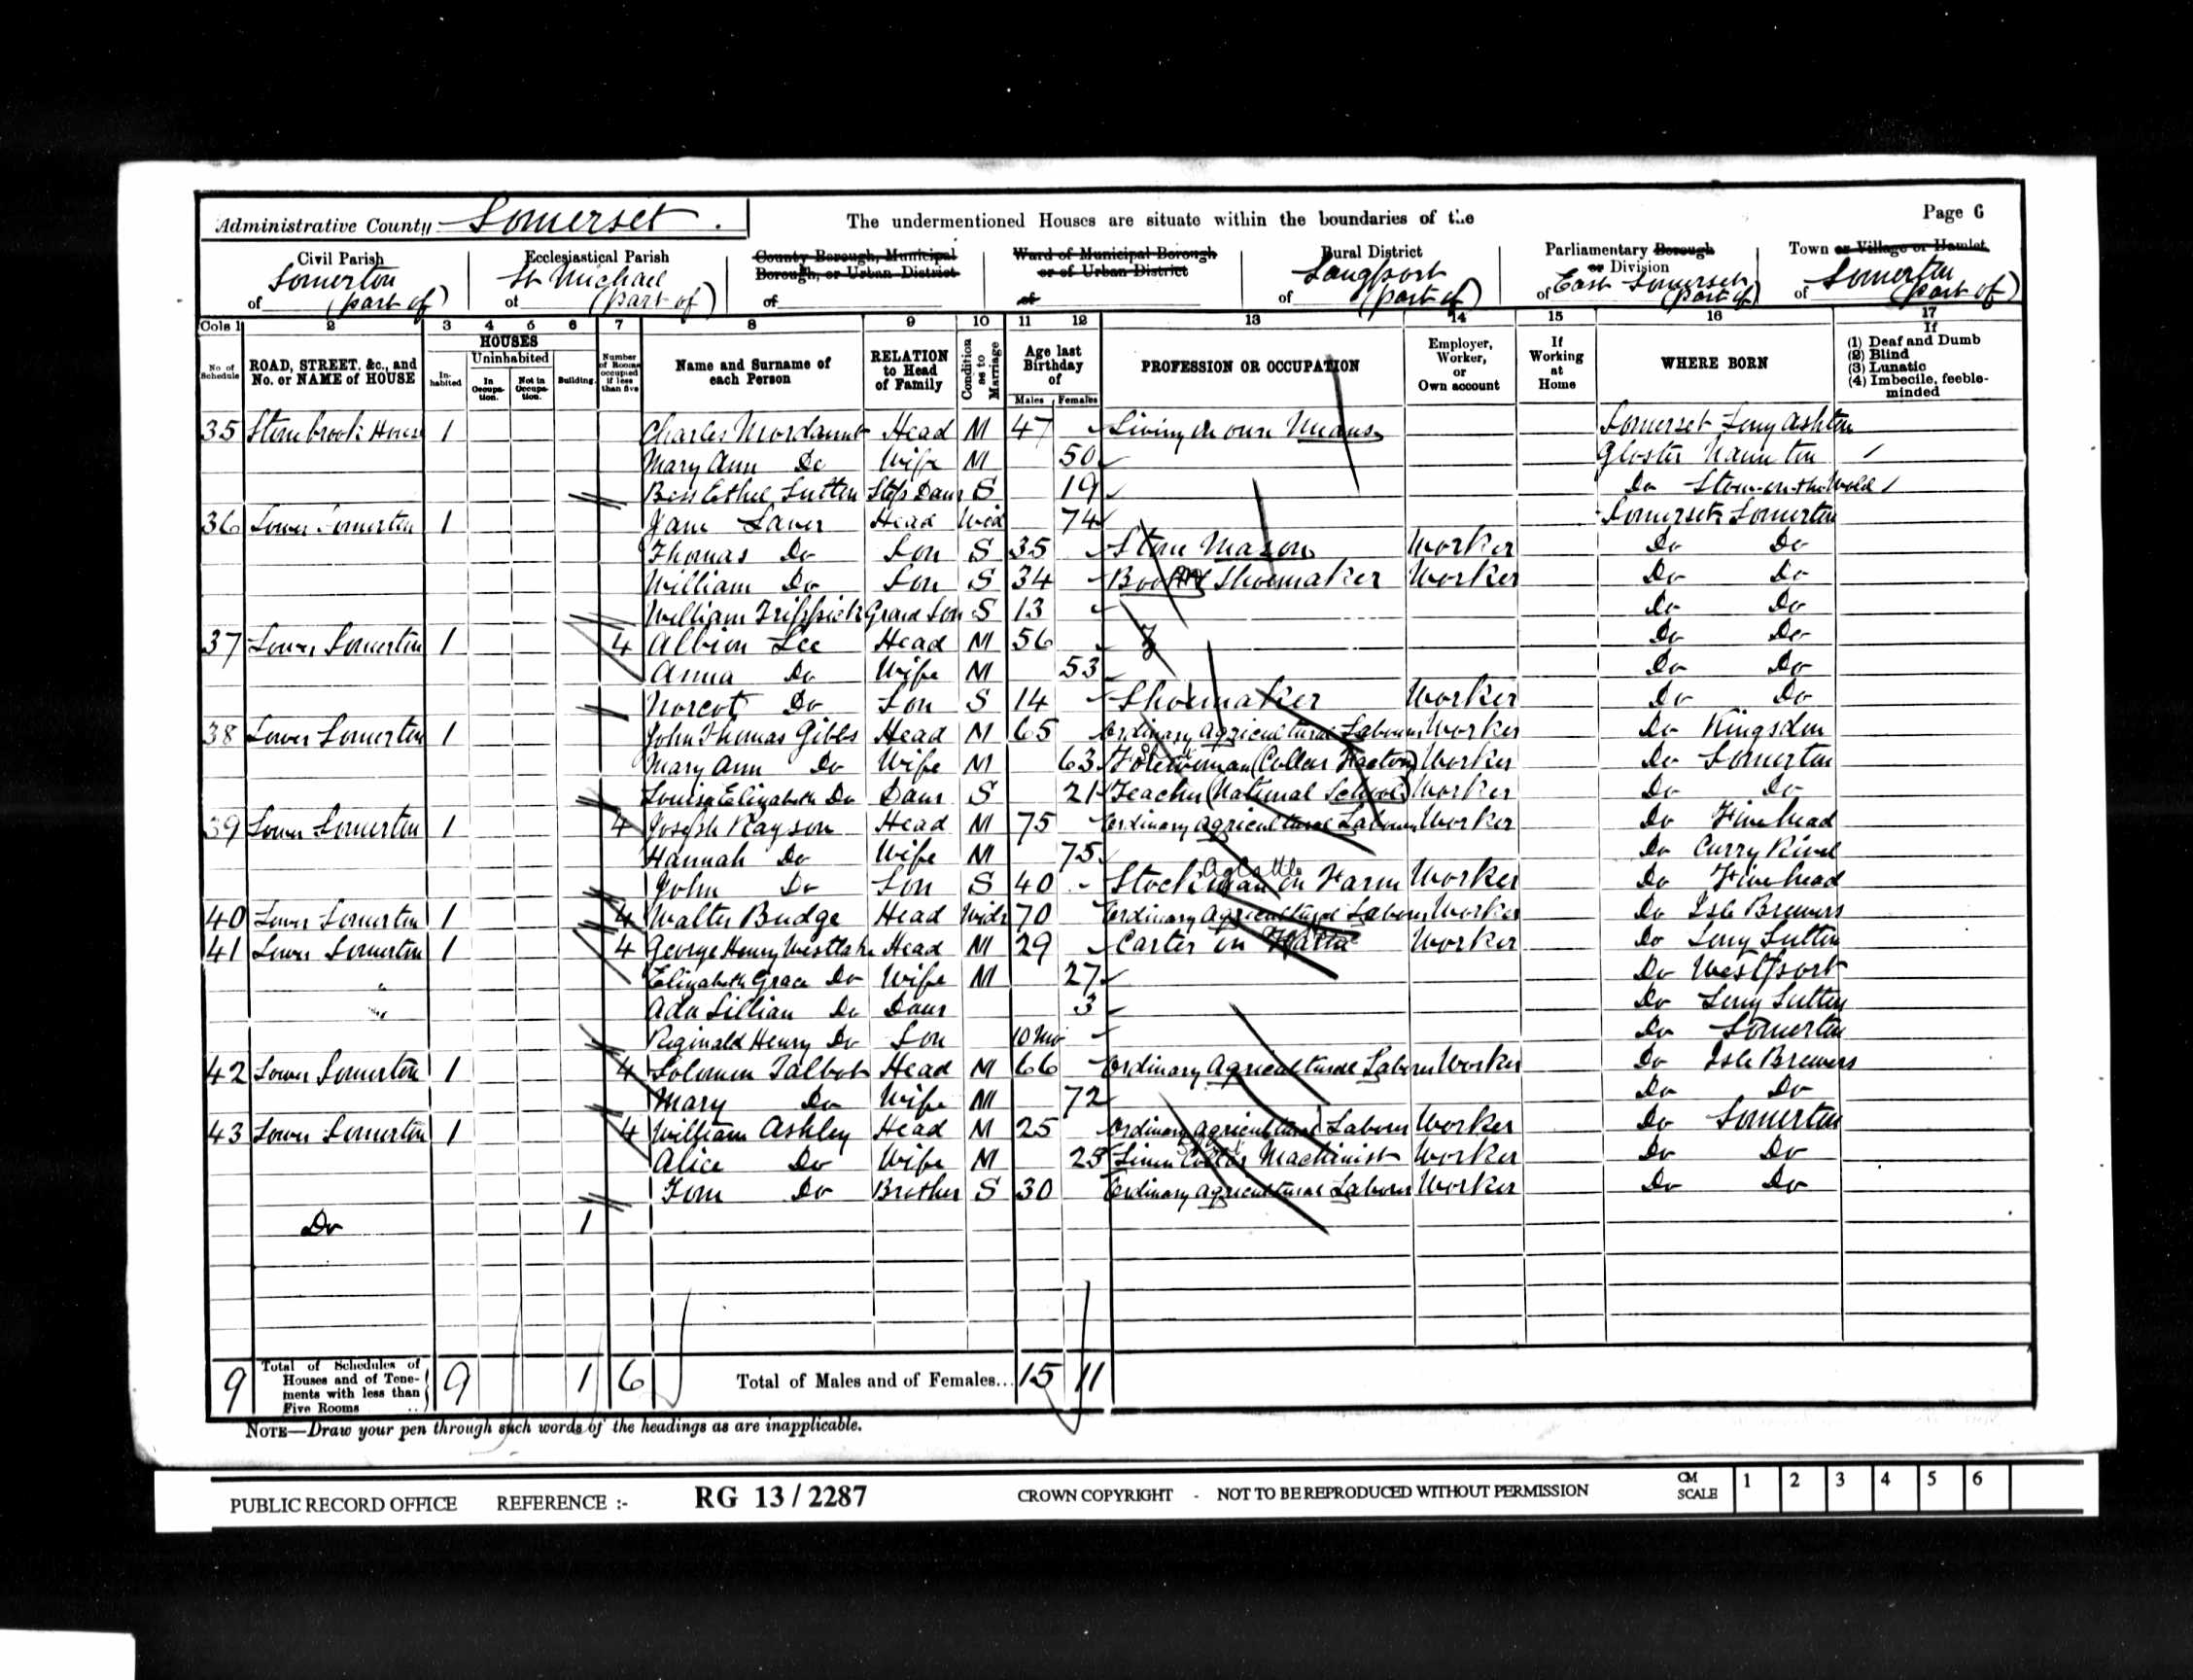 Administrative County Somerset. The undermentioned Houses are situate within the boundaries of the Page 6
Civil Parish Ecclesiastical Parish County Borough, Municipal Borough, or Urban District Ward of Municipal Borough or of Urban District Rural District Parliamentary Borough or Division Town or Village or Hamlet
of Somerton (part of) of St Michael (part of) of of of Langport (part of) of East Somerset (part of) of Somerton (part of)
Cols 1 2 3 4 5 6 7 8 9 10 11 12 13 14 15 16 17
No. of Schedule ROAD, STREET, &c., and No. or NAME of HOUSE HOUSES Inhabited Uninhabited In Occupation. Not in Occupation. Building. Number of Rooms occupied if less than five Name and Surname of each Person RELATION to Head of Family Condition as to Marriage Age last Birthday of Males Females PROFESSION OR OCCUPATION Employer, Worker, or Own account If Working at Home WHERE BORN If (1) Deaf and Dumb (2) Blind (3) Lunatic (4) Imbecile, feeble-minded
35 House 1 Charles Mordaunt Head M 47 Living on own Means Somerset Long Ashton
Mary Ann Do Wife M 50 Gloster
Bess Ethel Sutton Step Daur S 19 Do Stow-on-the-Wold
36 Lower Somerton 1 Jane Laver Head Wid 74 Somerset Somerton
Thomas Do Son S 35 Stone Mason Worker Do Do
William Do Son S 34 Boot Shoemaker Worker Do Do
William Grand Son S 13 Do Do
37 Lower Somerton 1 4 Albion Lee Head M 56 Do Do
Anna Do Wife M 53 Do Do
Norcot Do Son S 14 Shoemaker Worker Do Do
38 Lower Somerton 1 John Thomas Gibbs Head M 65 Ordinary Agricultural Labourer Worker Do Kingsdon
Mary Ann Do Wife M 63 Forewoman (Collar Factory) Worker Do Somerton
Louisa Elizabeth Do Daur S 21 Teacher (National School) Worker Do Do
39 Lower Somerton 1 4 Joseph Rayson Head M 75 Ordinary Agricultural Labourer Worker Do Fivehead
Hannah Do Wife M 75 Do Curry Rivel
John Do Son S 40 Stockman on Farm Worker Do Fivehead
40 Lower Somerton 1 4 Walter Budge Head Widr 70 Ordinary Agricultural Labourer Worker Do Isle Brewers
41 Lower Somerton 1 4 George Henry Westlake Head M 29 Carter on Farm Worker Do Long Sutton
" Elizabeth Grace Do Wife M 27 Do Westport
" Ada Lillian Do Daur 3 Do Long Sutton
Reginald Henry Do Son 10 Mo Do Somerton
42 Lower Somerton 1 4 Solomon Talbot Head M 66 Ordinary Agricultural Labourer Worker Do Isle Brewers
Mary Do Wife M 72 Do Do
43 Lower Somerton 1 4 William Ashley Head M 25 Ordinary Agricultural Labourer Worker Do Somerton
Alice Do Wife M 25 Linen Collar Machinist Worker Do Do
Tom Do Brother S 30 Ordinary Agricultural Labourer Worker Do Do
Do 1
9 Total of Schedules of Houses and of Tenements with less than Five Rooms 9 1 6 Total of Males and of Females... 15 11
NOTE—Draw your pen through such words of the headings as are inapplicable.
PUBLIC RECORD OFFICE REFERENCE :- RG 13/2287 CROWN COPYRIGHT - NOT TO BE REPRODUCED WITHOUT PERMISSION CM SCALE 1 2 3 4 5 6